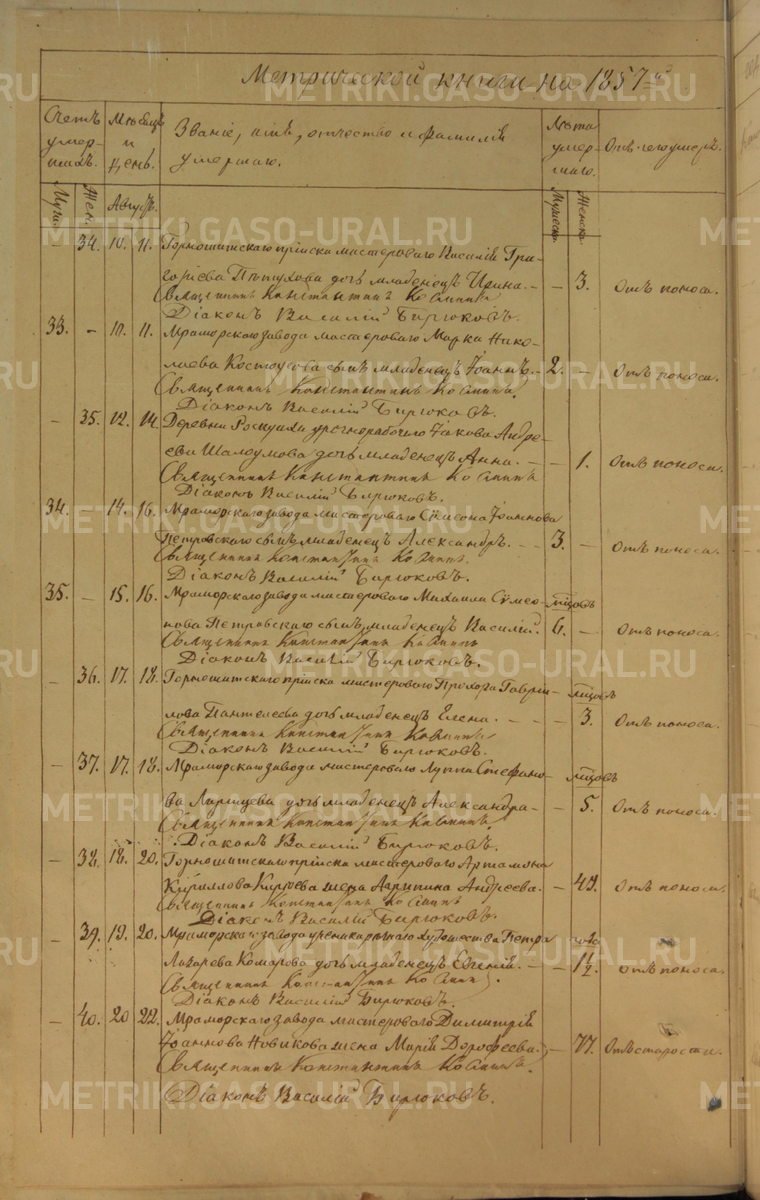 Метрической книги на 1857 й
Счетъ умершихъ. Мѣсяцъ и день. Званіе, имя, отчество и фамилія умершаго. Лѣта умершаго. Отъ чего умеръ.
Муж. Жен. Августъ. Мужеска Женска
34. 10. 11. Горнощитскаго пріиска мастероваго Василія Гри-
горіева дочь младенецъ Ирина. – – 3. Отъ поноса.
Священникъ Константинъ
Діаконъ Василій Бирюковъ.
33. – 10. 11. Мраморскаго завода мастероваго Марка Нико-
лаева Костоусова сынъ младенецъ Іоаннъ. 2. – Отъ поноса.
Священникъ Константинъ
Діаконъ Василій Бирюковъ.
– 35. 12. 14. Деревни Іакова Андре-
ева дочь младенецъ Анна. – – 1. Отъ поноса.
Священникъ Константинъ
Діаконъ Василій Бирюковъ.
34. – 14. 16. Мраморскаго завода мастероваго Симеона Іоаннова
Петровскаго сынъ младенецъ Александръ. – 3. – Отъ поноса.
Священникъ Константинъ
Діаконъ Василій Бирюковъ.
35. – 15. 16. Мраморскаго завода мастероваго Михаила Сѵмео- мѣсяцовъ
нова Петровскаго сынъ младенецъ Василій. 6. – Отъ поноса.
Священникъ Константинъ
Діаконъ Василій Бирюковъ.
– 36. 17. 18. Горнощитскаго пріиска мастероваго Прохора Гаврии- мѣсяцовъ
лова Пантелеева дочь младенецъ Елена. – – 3. Отъ поноса.
Священникъ Константинъ
Діаконъ Василій Бирюковъ.
– 37. 17. 18. Мраморскаго завода мастероваго Луппа Стефано- мѣсяцовъ
ва дочь младенецъ Александра – – 5. Отъ поноса.
Священникъ Константинъ
Діаконъ Василій Бирюковъ.
– 38. 18. 20. Горнощитскаго пріиска мастероваго Артамона
Кириллова жена Агрипина Андреева. – Отъ поноса.
Священникъ Константинъ
Діаконъ Василій Бирюковъ.
– 39. 19. 20. Мраморскаго завода ученика художества Петра года
Лазарева Комарова дочь младенецъ Евгенія. – – 1½. Отъ поноса.
Священникъ Константинъ
Діаконъ Василій Бирюковъ.
– 40. 20 22. Мраморскаго завода мастероваго Димитрія
Іоаннова Новикова жена Марія Дорофеева. – 77. Отъ старости.
Священникъ Константинъ
Діаконъ Василій Бирюковъ.
METRIKI.GASO-URAL.RU